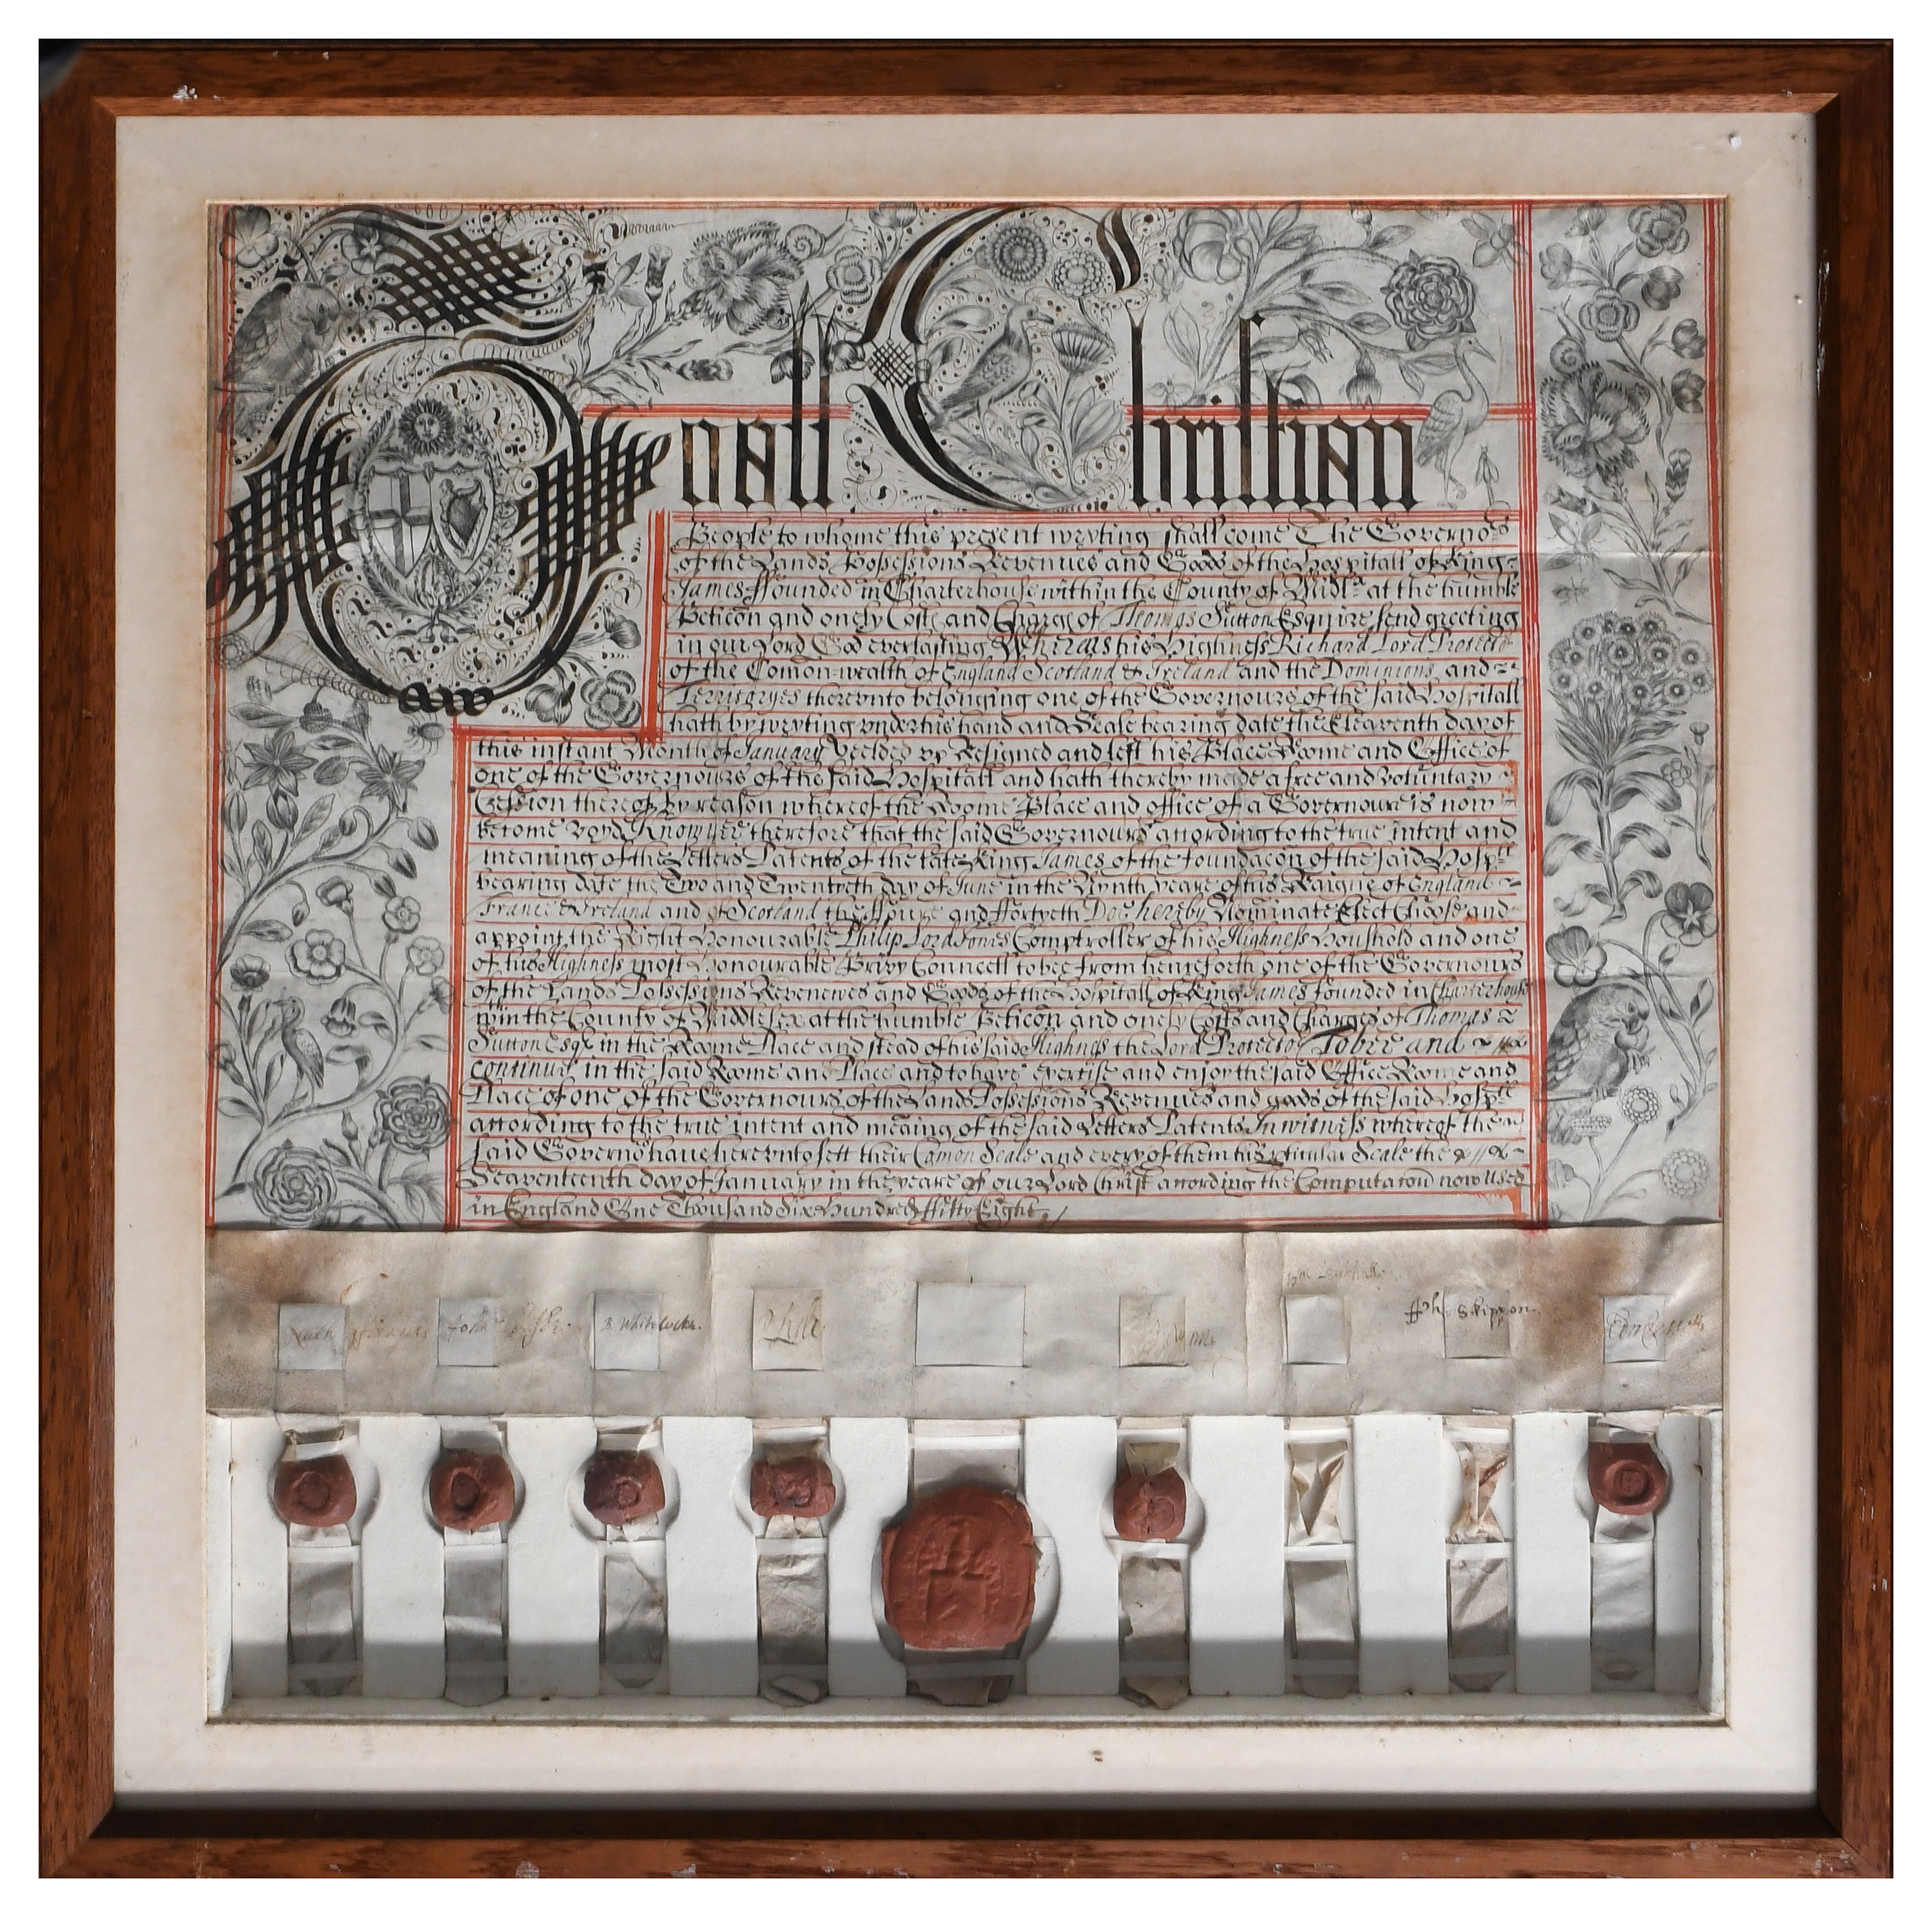 To all Christian
People to whome this present wryting shall come The Governors
of the Lands Possessions Revenues and Goods of the Hospitall of King
James ffounded in Charterhouse within the County of Midd at the humble
Peticon and onely Costs and Charges of Thomas Sutton Esquire send greeting
in our Lord God everlasting Whereas his Highness Richard Lord Protector
of the Comon-wealth of England Scotland & Ireland and the Dominions and
Territoryes therevnto belonging one of the Governours of the said Hospitall
hath by wryting vnder his hand and Seale bearing date the Eleaventh day of
this instant Month of January yeelded vp Resigned and left his Place Roome and Office of
one of the Governours of the said Hospitall and hath thereby made a free and voluntary
Cession thereof By reason whereof the Roome Place and office of a Governour is now
become voyd Know yee therefore that the said Governours according to the true intent and
meaning of the Letters Patents of the late King James of the foundacon of the said Hospll
bearing date the Two and Twentyeth day of June in the Nynth yeare of his Raigne of England
France & Ireland and of Scotland the ffoure and ffortyeth Doe hereby Nominate Elect Choose and
appoint the Right Honourable Philip Lord Jones Comptroller of his Highness Houshold and one
of his Highness most Honourable Privy Councell to bee from henceforth one of the Governours
of the Lands Possessions Revenewes and Goods of the Hospitall of King James founded in Charterhouse
wthin the County of Middlesex at the humble Peticon and onely Costs and Charges of Thomas
Sutton Esqr in the Roome Place and stead of his said Highness the Lord Protector To bee and
continue in the said Roome and Place and to have exercise and enjoy the said Office Roome and
Place of one of the Governours of the Lands Possessions Revenues and goods of the said Hospll
according to the true intent and meaning of the said Letters Patents In witness whereof the
said Governors have herevnto sett their Comon Seale and every of them his rticular Seale the
Seaventeenth day of January in the yeare of our Lord Christ according the Computation now used
in England One Thousand Six Hundred ffifty Eight
Wm Lenthall
Nath ffiennes John Lisle B Whitelocke Phi Skippon